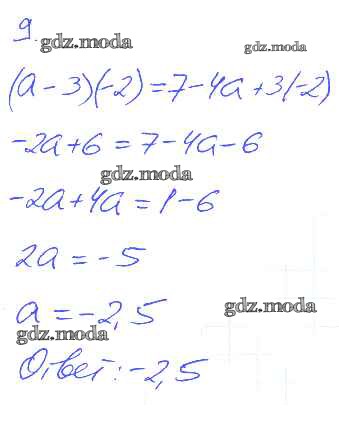 9.
gdz.moda
gdz.moda
(a-3)(-2)=7-4a+3(-2)
-2a+6=7-4a-6
gdz.moda
-2a+4a=1-6
2a=-5
a=-2,5
gdz.moda
gdz.moda
Ответ:-2,5